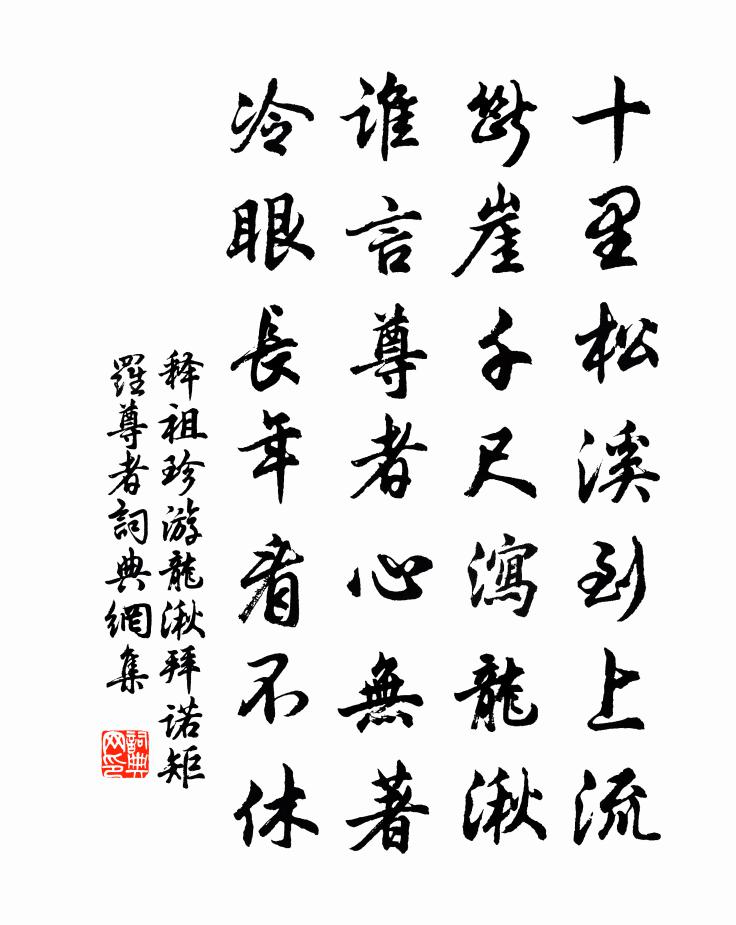 十里松溪到上流
斷崖千尺瀉龍湫
誰言尊者心無著
冷眼長年看不休
释祖珍游龍湫拜诺矩
羅尊者詞典網集
詞典网印